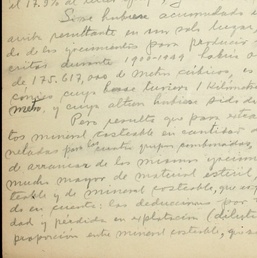 el 17.3% al
Si se hubiese acumulado
resultante en un solo lugar
de los yacimientos para producir
critas durante 1900-1944 habría
de 175.617,000 de metros cúbicos,
cónico cuya base tuviera 1 kilómetro
metro, y cuya altura hubiese sido de
Pero resulta que para extra
to mineral costeable en cantidad
neladas por los cuatro grupos combinados,
de arrancar de los mismos yacimi
mucho mayor de material estéril
teable y de mineral costeable, que
do en cuenta: las deducciones por
dad y pérdida en explotación (dilut
proporción entre mineral costeable, que